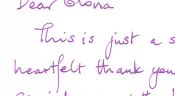 Dear Gloria
This is just a s
heartfelt thank you